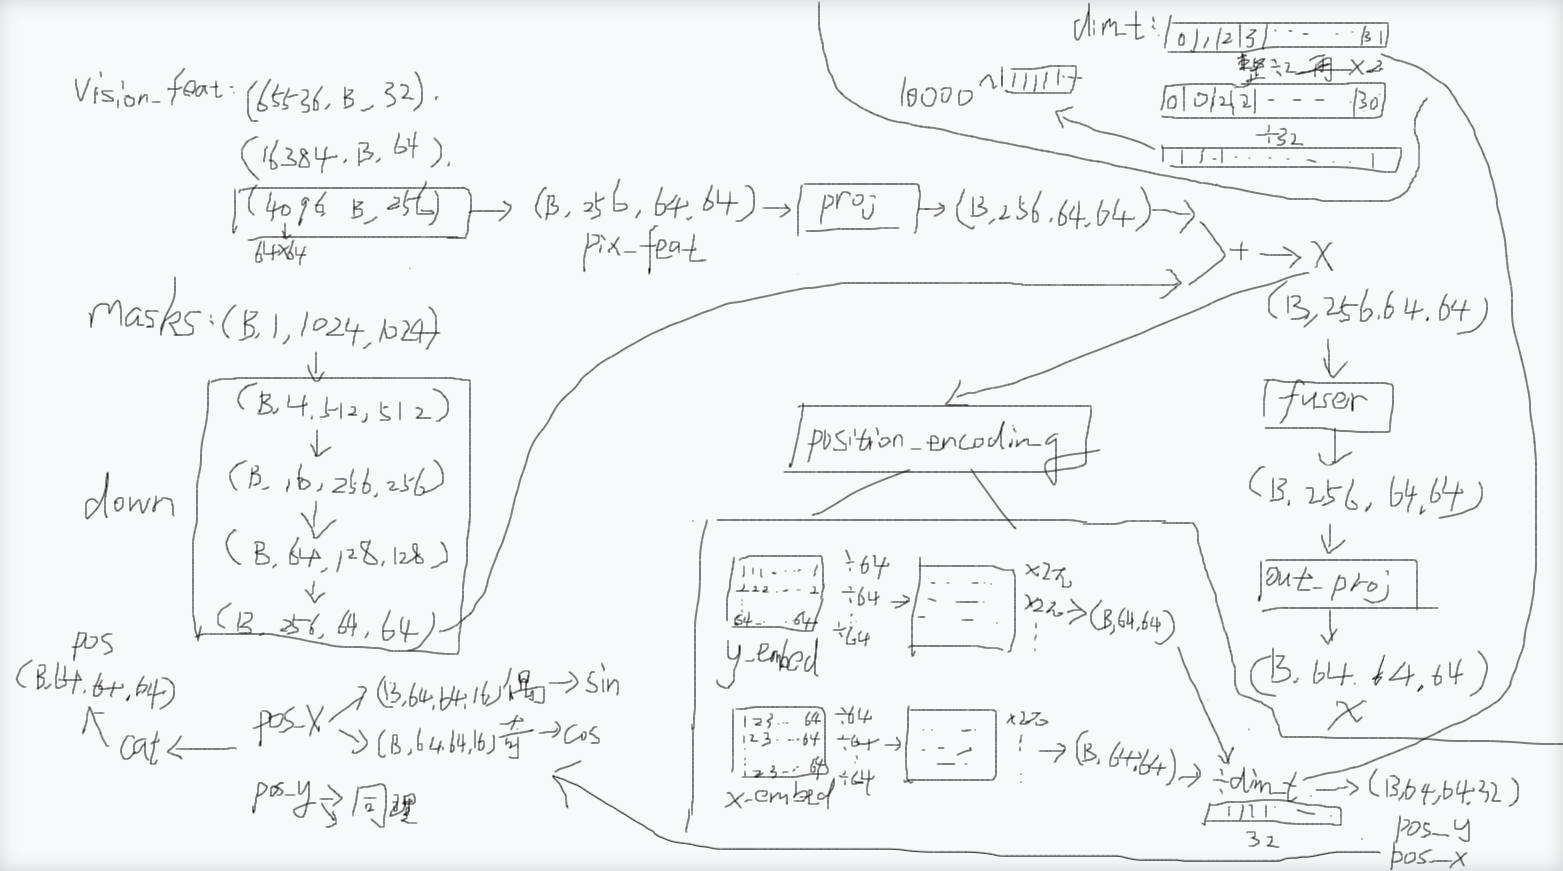 Vision_feat: (65536, B, 32).
(16384, B, 64).
(4096 B, 256)
64×64
(B, 256, 64, 64)
pix_feat
proj
(B, 256, 64, 64)
+
X
(B, 256, 64, 64)
fuser
(B, 256, 64, 64)
out_proj
(B, 64, 64, 64)
X
dim_t: 0 1 2 3 ... ... 31
整÷2 再 ×2
0 0 2 2 - - - 30
÷32
10000^
masks: (B, 1, 1024, 1024)
down
(B, 4, 512, 512)
(B, 16, 256, 256)
(B, 64, 128, 128)
(B, 256, 64, 64)
position_encoding
1 1 1 ... 1
2 2 2 ... 2
64 ... 64
y_embed
÷64
÷64
÷64
×2π
×2π
(B, 64, 64)
1 2 3 ... 64
1 2 3 ... 64
1 2 3 ... 64
x_embed
÷64
÷64
÷64
×2π
(B, 64, 64)
÷dim_t
32
(B, 64, 64, 32)
pos_y
pos_x
pos_x
(B, 64, 64, 16) 偶
sin
(B, 64, 64, 16) 奇
cos
pos_y
同理
cat
pos
(B, 64, 64, 64)